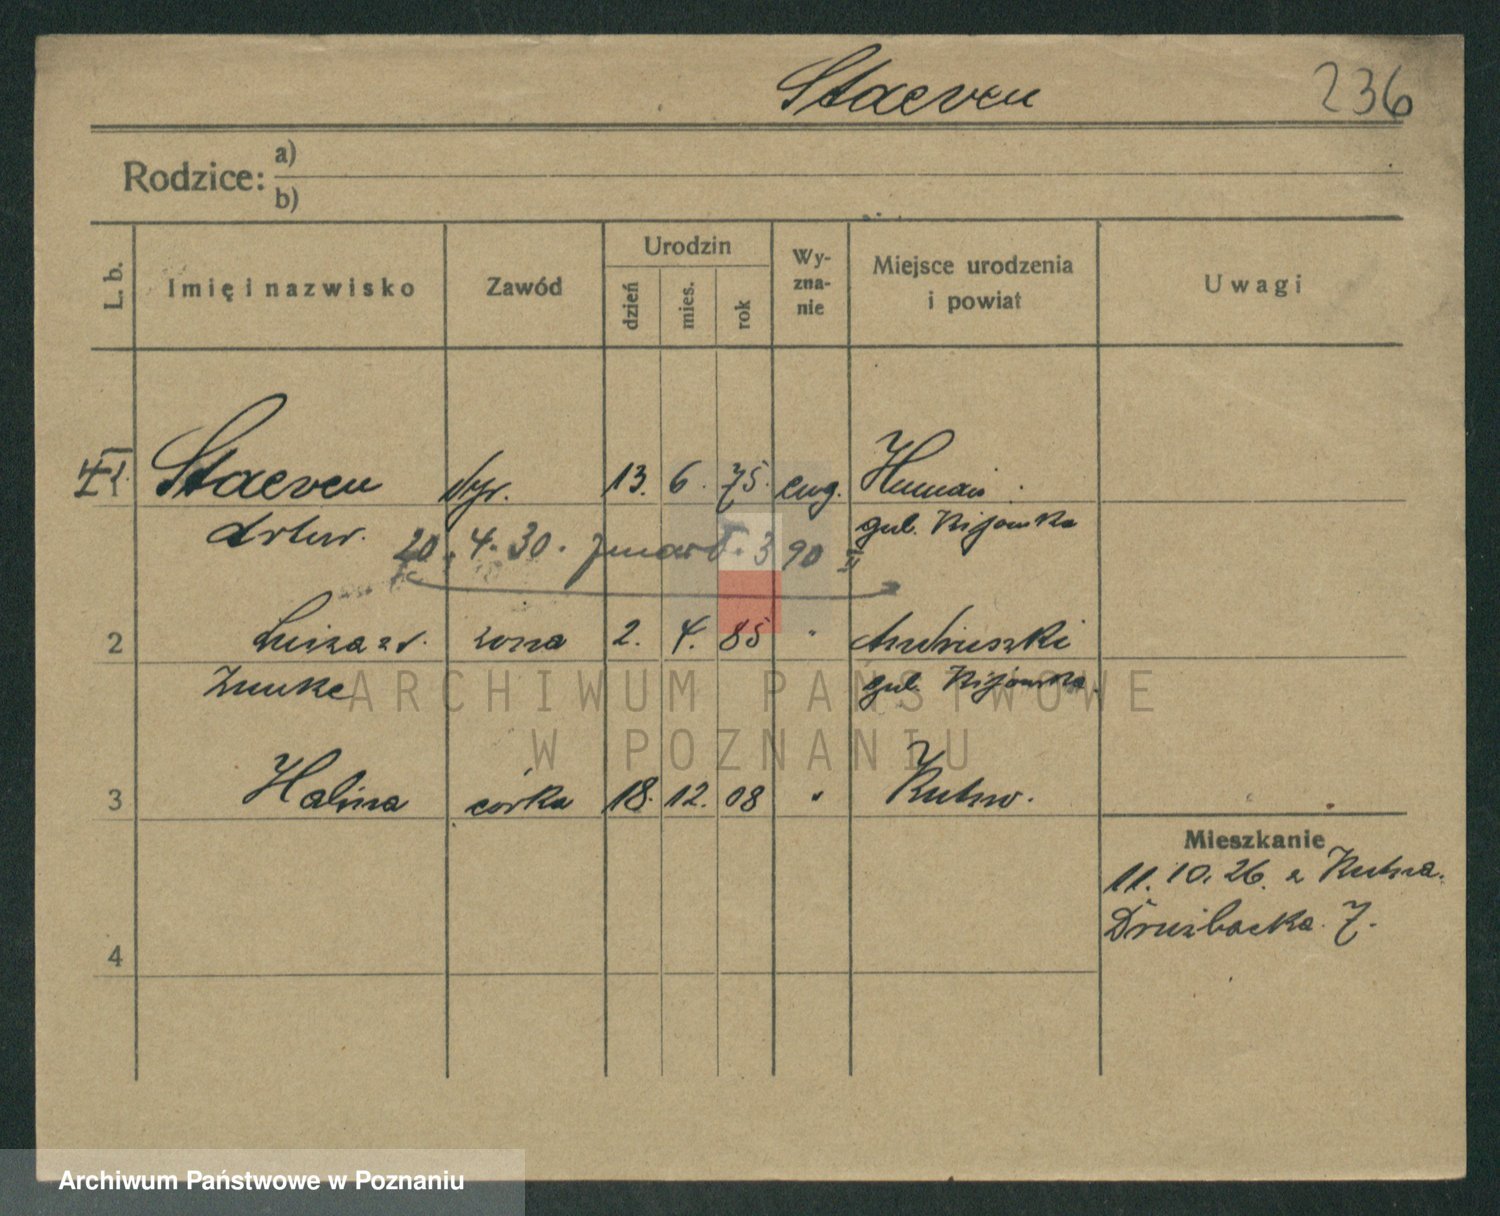 Staeven 236
Rodzice: a)
b)
L. b. Imię i nazwisko Zawód Urodzin dzień mies. rok Wyzna-nie Miejsce urodzenia i powiat Uwagi
Staeven dyr. 13. 6. 75. ewg. Humań
Artur. gub. Kijowska
20. 4. 30. zmarł. 390 II
2 Luiza z d. żona 2. 4. 85 " Andruszki
Zunke gub. Kijowska.
ARCHIWUM PAŃSTWOWE
W POZNANIU
3 Halina córka 18. 12. 08 " Kutno.
Mieszkanie
11. 10. 26. z Kutna.
Drużbacka 7.
4
Archiwum Państwowe w Poznaniu